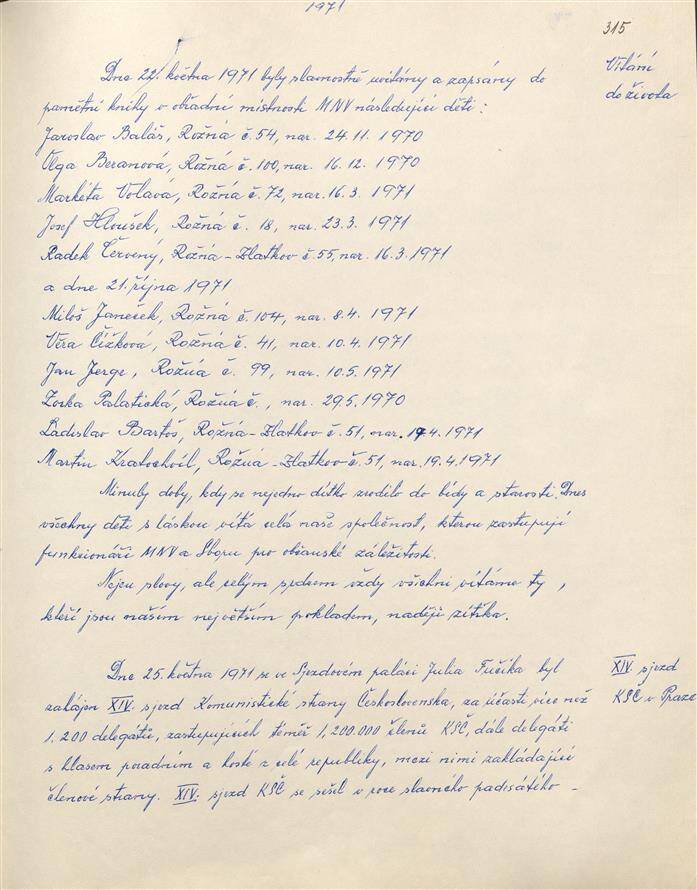 1971
315
Dne 22. května 1971 byly slavnostně uvítány a zapsány do
Vítání
do života
pamětní knihy v obřadní místnosti MNV následující děti:
Jaroslav Baláš, Rožná č. 54, nar. 24.11. 1970
Olga Beranová, Rožná č. 100, nar. 16.12. 1970
Markéta Volavá, Rožná č. 72, nar. 16.3. 1971
Josef Hloušek, Rožná č. 18, nar. 23.3. 1971
Radek Červený, Rožná - Zlatkov č. 55, nar. 16.3.1971
a dne 21. října 1971
Miloš Janeček, Rožná č. 104, nar. 8.4. 1971
Věra Čížková, Rožná č. 41, nar. 10.4. 1971
Jan Jerge, Rožná č. 99, nar. 10.5.1971
Zorka Palatická, Rožná č. , nar. 29.5.1970
Ladislav Bartoš, Rožná - Zlatkov č. 51, nar. 4.1971
Martin Kratochvíl, Rožná - Zlatkov č. 51, nar. 19.4.1971
Minuly doby, kdy se nejedno dítko zrodilo do bídy a starosti. Dnes
všechny děti s láskou vítá celá naše společnost, kterou zastupují
funkcionáři MNV a Sboru pro občanské záležitosti.
Nejen slovy, ale celým srdcem vždy všichni vítáme ty,
kteří jsou naším největším pokladem, nadějí zítřka.
Dne 25. května 1971 se ve Sjezdovém paláci Julia Fučíka byl
XIV. sjezd
KSČ v Praze
zahájen XIV. sjezd Komunistické strany Československa, za účasti více než
1.200 delegátů, zastupujících téměř 1,200.000 členů KSČ, dále delegáti
s hlasem poradním a hosté z celé republiky, mezi nimi zakládající
členové strany. XIV. sjezd KSČ se sešel v roce slavného padesátého -